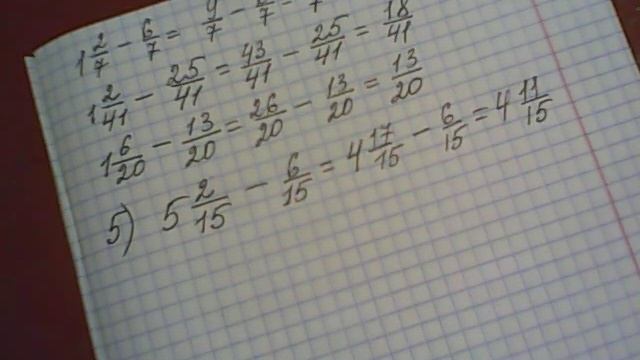 1 2/7 - 6/7 = 9/7 -
1 2/41 - 25/41 = 43/41 - 25/41 = 18/41
1 6/20 - 13/20 = 26/20 - 13/20 = 13/20
5) 5 2/15 - 6/15 = 4 17/15 - 6/15 = 4 11/15